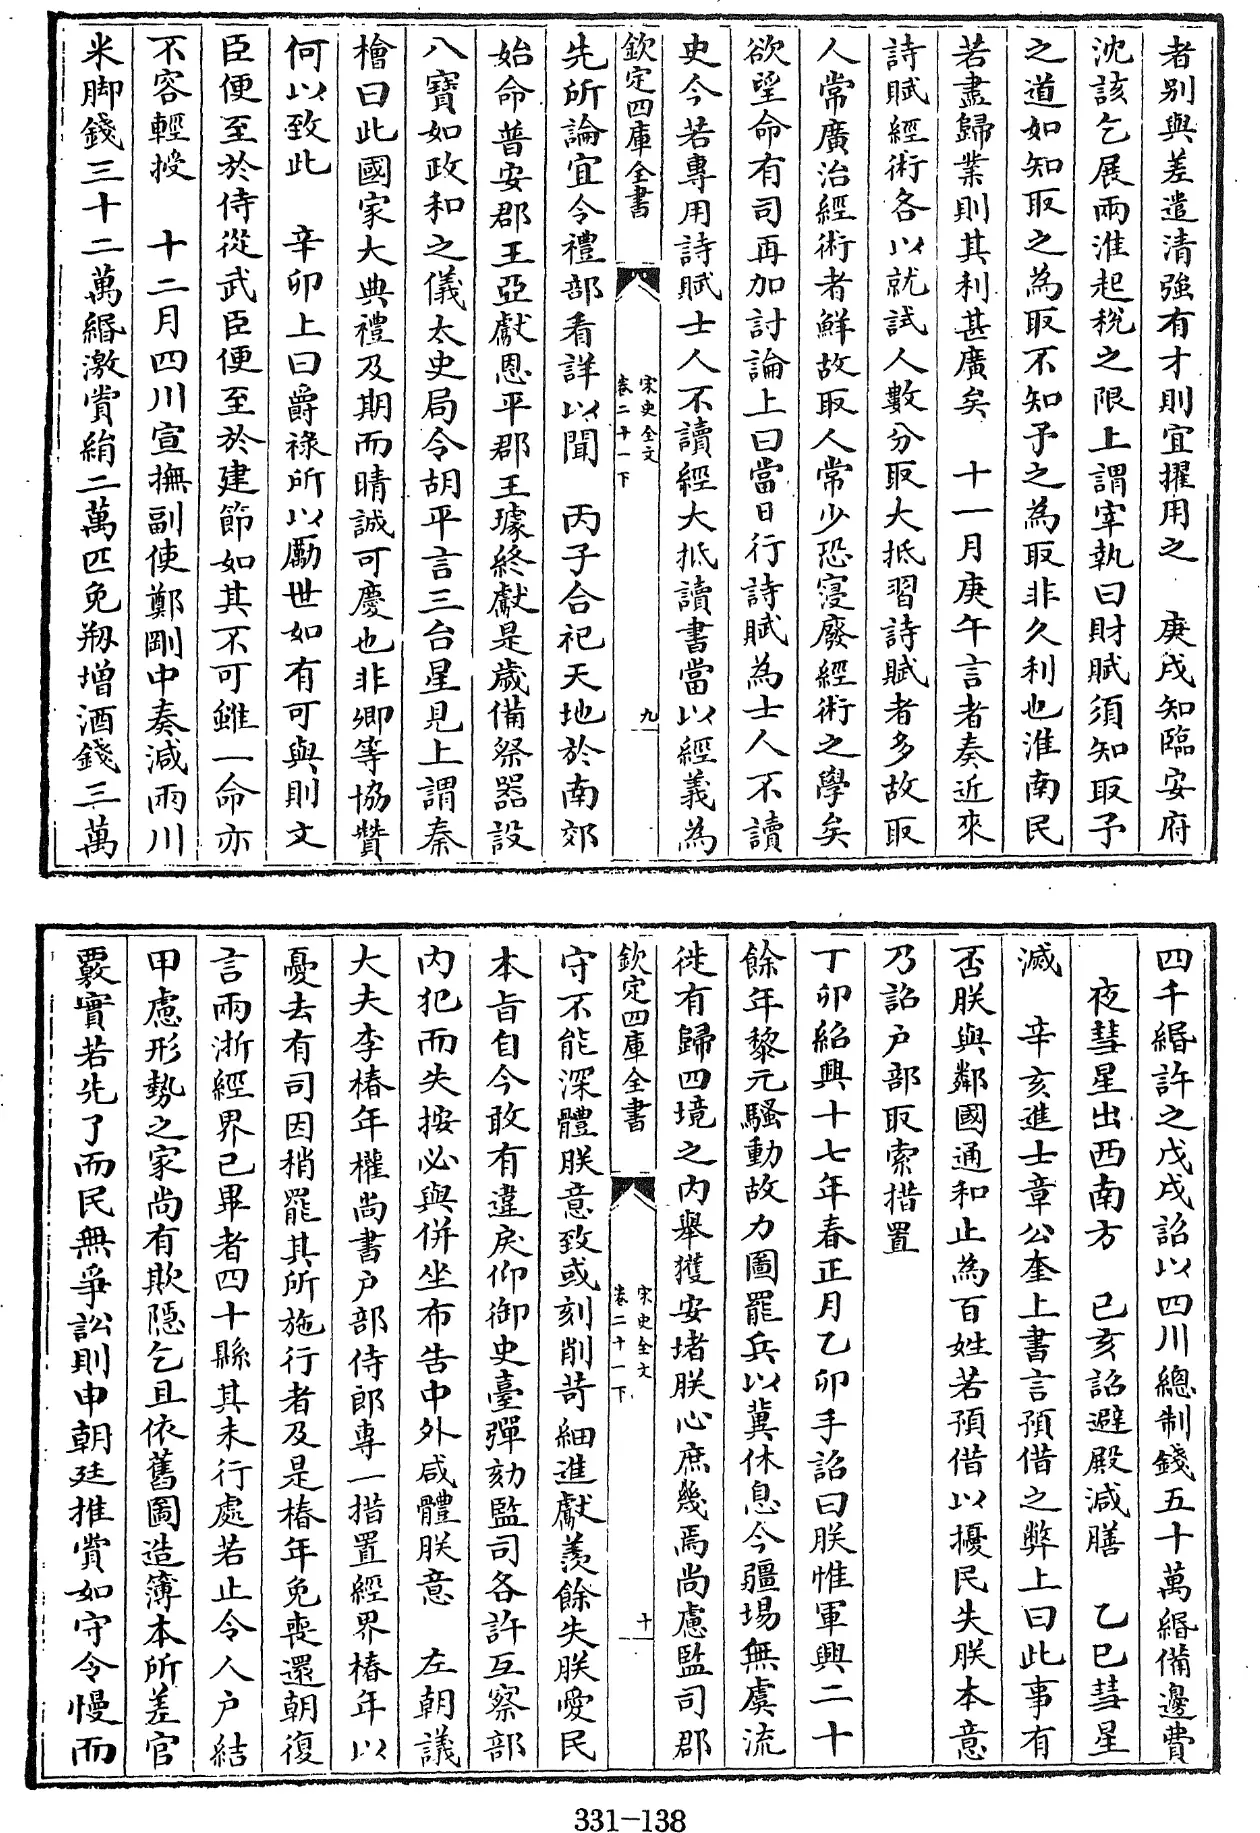 者別與差遣清強有才則宜擢用之　庚戌知臨安府
沈該乞展兩淮起稅之限上謂宰執曰財賦須知取予
之道如知取之為取不知予之為取非久利也淮南民
若盡歸業則其利甚廣矣　十一月庚午言者奏近來
詩賦經術各以就試人數分取大抵習詩賦者多故取
人常廣治經術者鮮故取人常少恐寖廢經術之學矣
欲望命有司再加討論上曰當日行詩賦為士人不讀
史今若專用詩賦士人不讀經大抵讀書當以經義為
欽定四庫全書　宋史全文卷二十一下　九
先所論宜令禮部看詳以聞　丙子合祀天地於南郊
始命普安郡王亞獻恩平郡王璩終獻是歲備祭器設
八寶如政和之儀太史局令胡平言三台星見上謂秦
檜曰此國家大典禮及期而晴誠可慶也非卿等協贊
何以致此　辛卯上曰爵祿所以勵世如有可與則文
臣便至於侍從武臣便至於建節如其不可雖一命亦
不容輕授　十二月四川宣撫副使鄭剛中奏減兩川
米脚錢三十二萬緡激賞絹二萬匹免剏增酒錢三萬
四千緡許之戊戌詔以四川總制錢五十萬緡備邊費
夜彗星出西南方　己亥詔避殿減膳　乙巳彗星
滅　辛亥進士章公奎上書言預借之弊上曰此事有
否朕與鄰國通和止為百姓若預借以擾民失朕本意
乃詔户部取索措置
丁卯紹興十七年春正月乙卯手詔曰朕惟軍興二十
餘年黎元騷動故力圖罷兵以冀休息今疆場無虞流
徙有歸四境之内舉獲安堵朕心庶幾焉尚慮監司郡
欽定四庫全書　宋史全文卷二十一下　十
守不能深體朕意致或刻削苛細進獻羨餘失朕愛民
本旨自今敢有違戾仰御史臺彈劾監司各許互察部
内犯而失按必與併坐布告中外咸體朕意　左朝議
大夫李椿年權尚書户部侍郎專一措置經界椿年以
憂去有司因稍罷其所施行者及是椿年免喪還朝復
言兩浙經界已畢者四十縣其未行處若止令人户結
甲慮形勢之家尚有欺隱乞且依舊圖造簿本所差官
覈實若先了而民無爭訟則申朝廷推賞如守令慢而
331-138